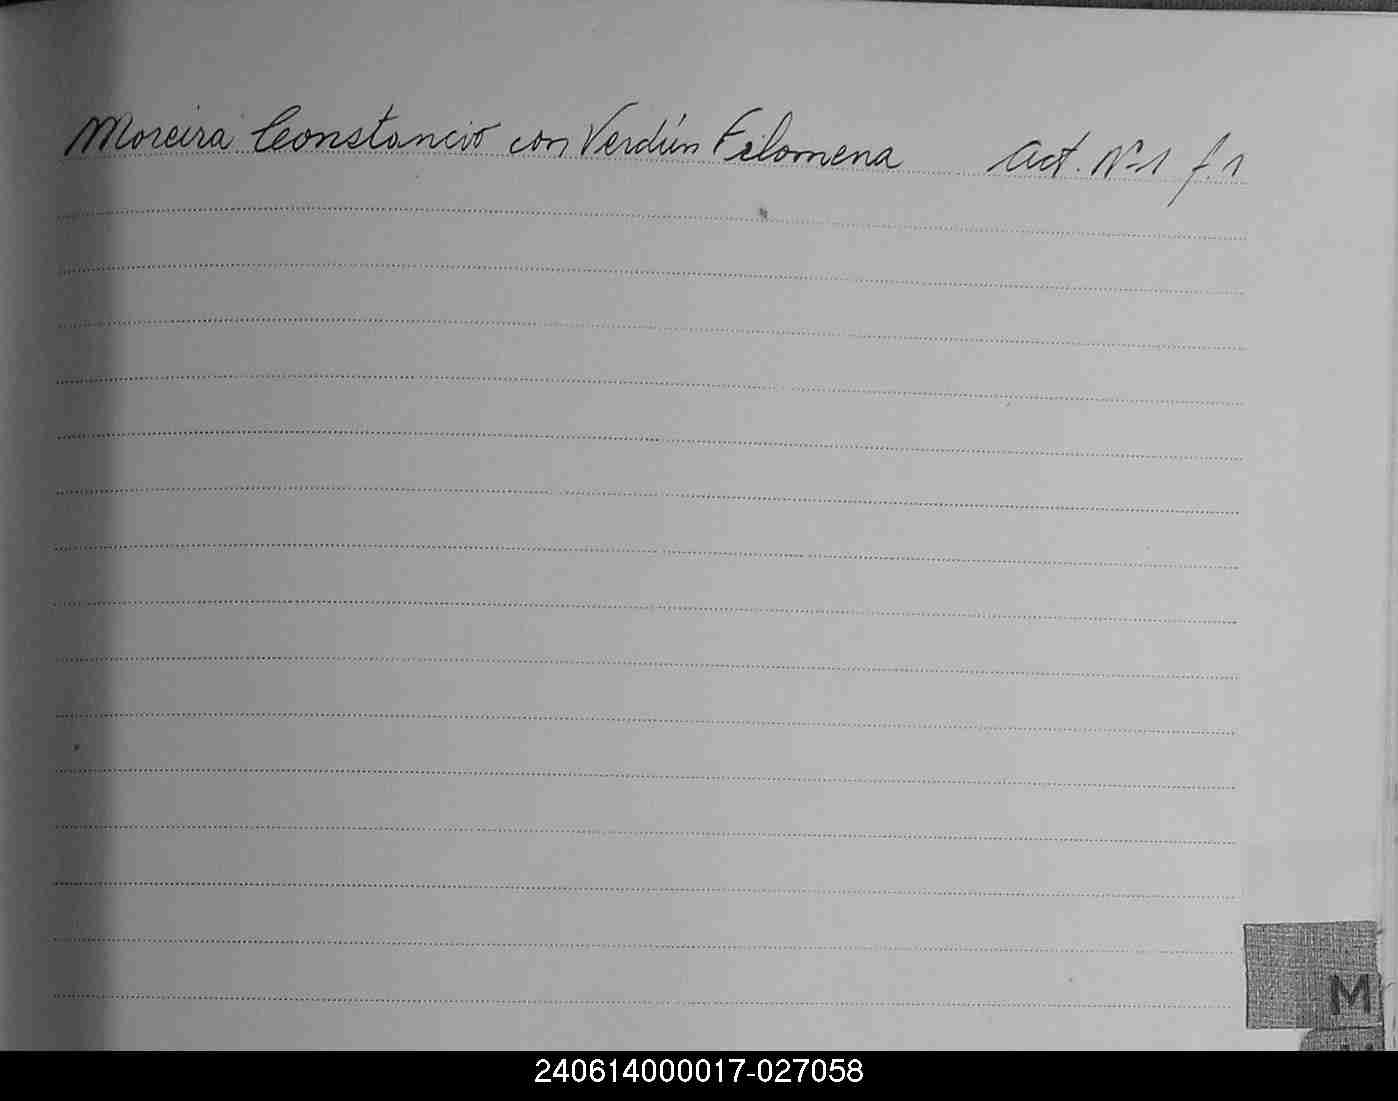 Moreira Constancio con Verdún Filomena act. Nº 1 f. 1
M
240614000017-027058